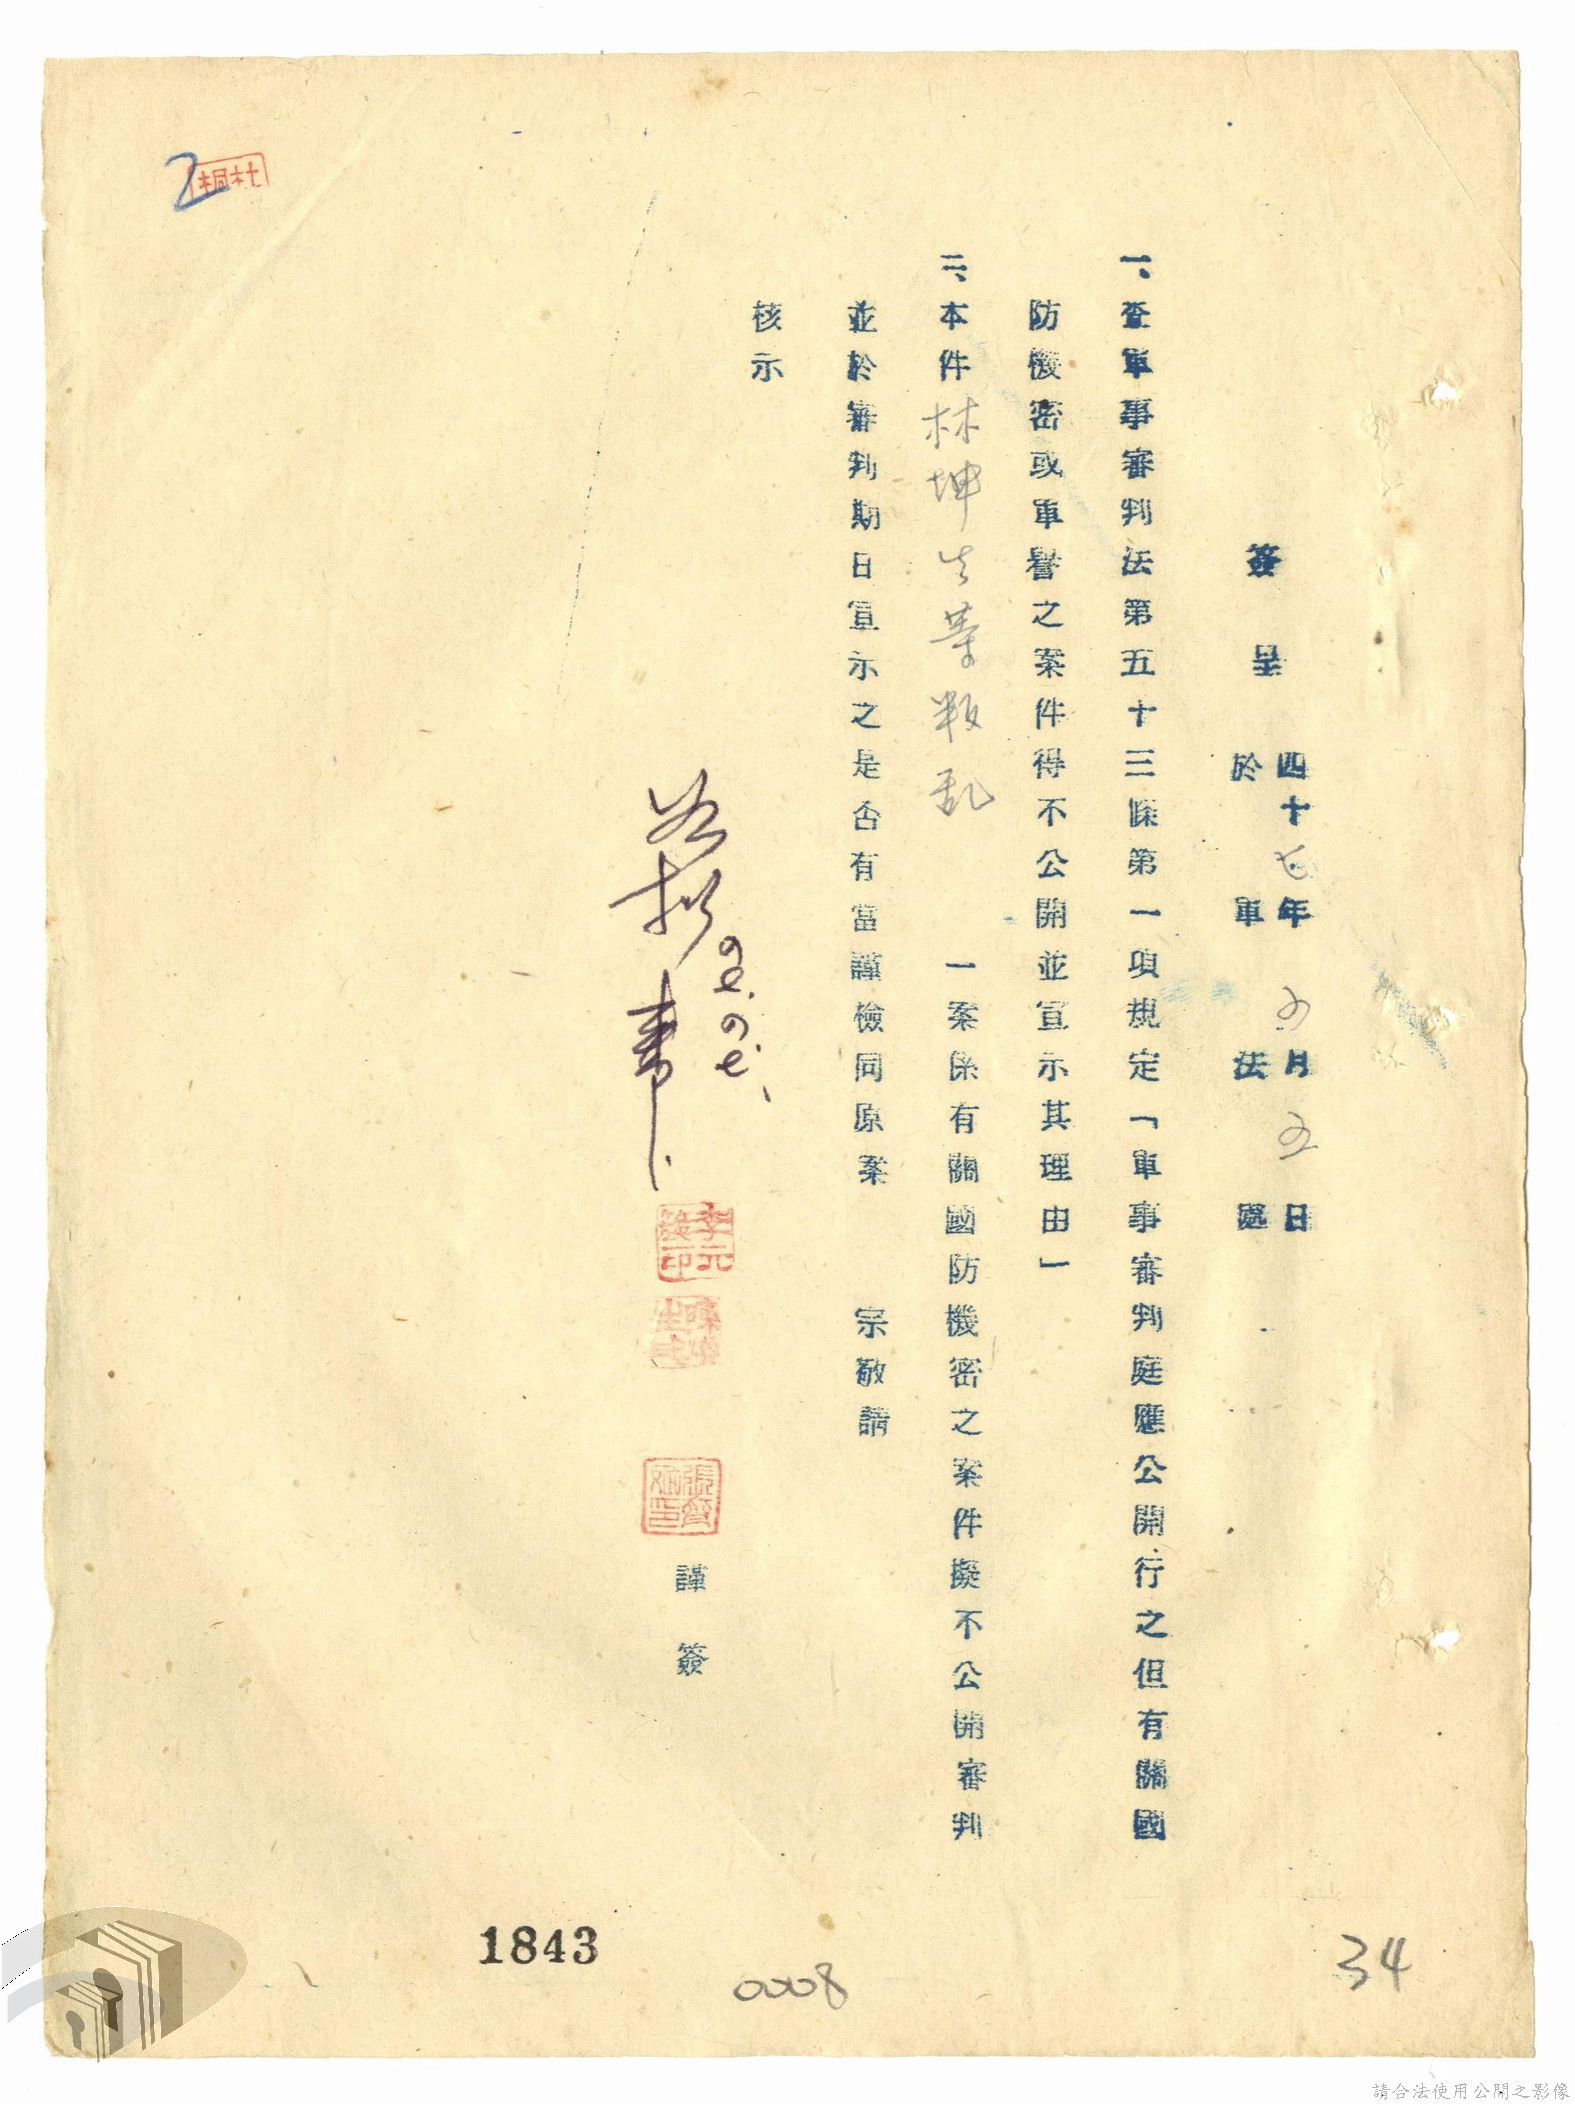 簽呈 四十七年 五月 五日
於軍法處
一、查軍事審判法第五十三條第一項規定「軍事審判庭應公開行之但有關國
防機密或軍譽之案件得不公開並宣示其理由」
二、本件林坤生等叛乱 一案係有關國防機密之案件擬不公開審判
並於審判期日宣示之是否有當謹檢同原案 宗敬請
核示
謹簽
1843
0008
34
請合法使用公開之影像